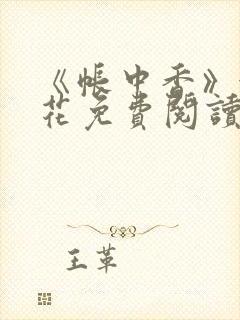 《帳中香》
花免費閱讀
王革